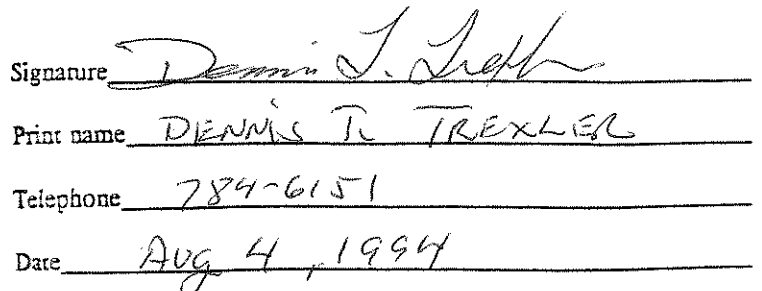 Signature Dennis T. Trexler
Print name DENNIS T. TREXLER
Telephone 784-6151
Date Aug 4, 1994